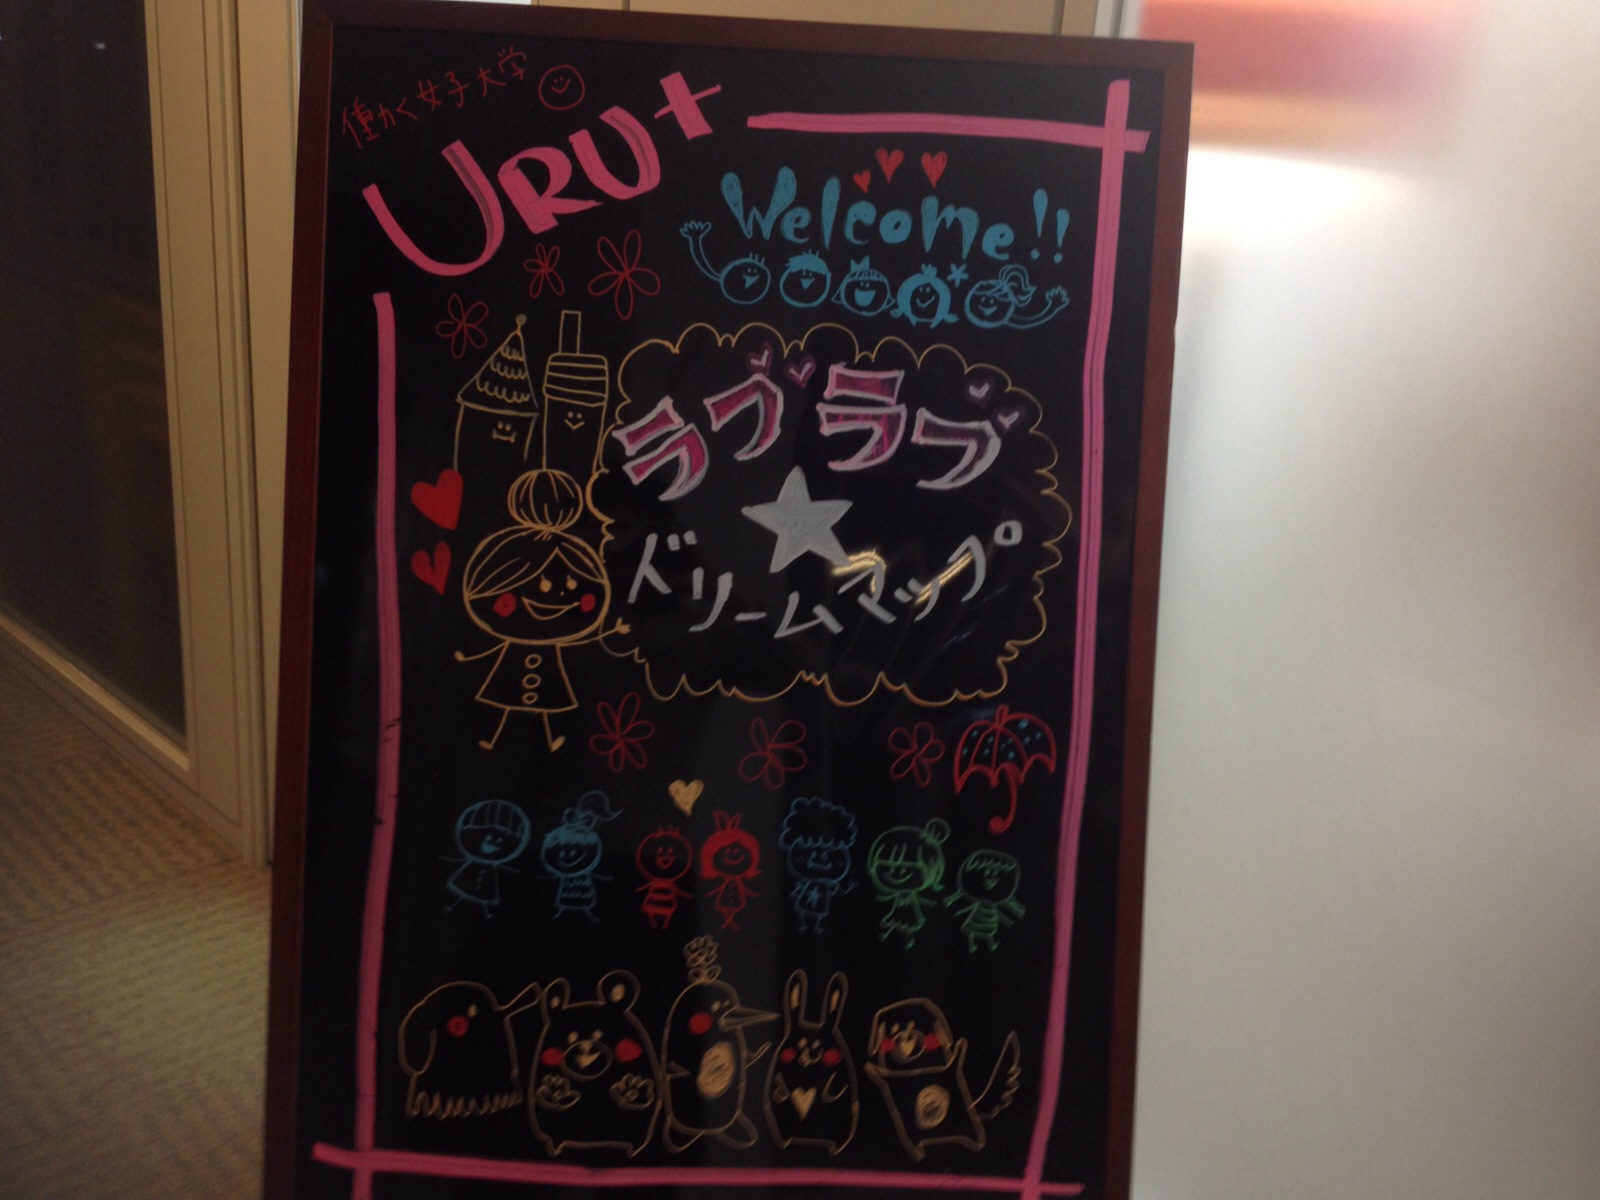 働く女子大学
URU+
Welcome!!
ラブラブ
★
ドリームマップ